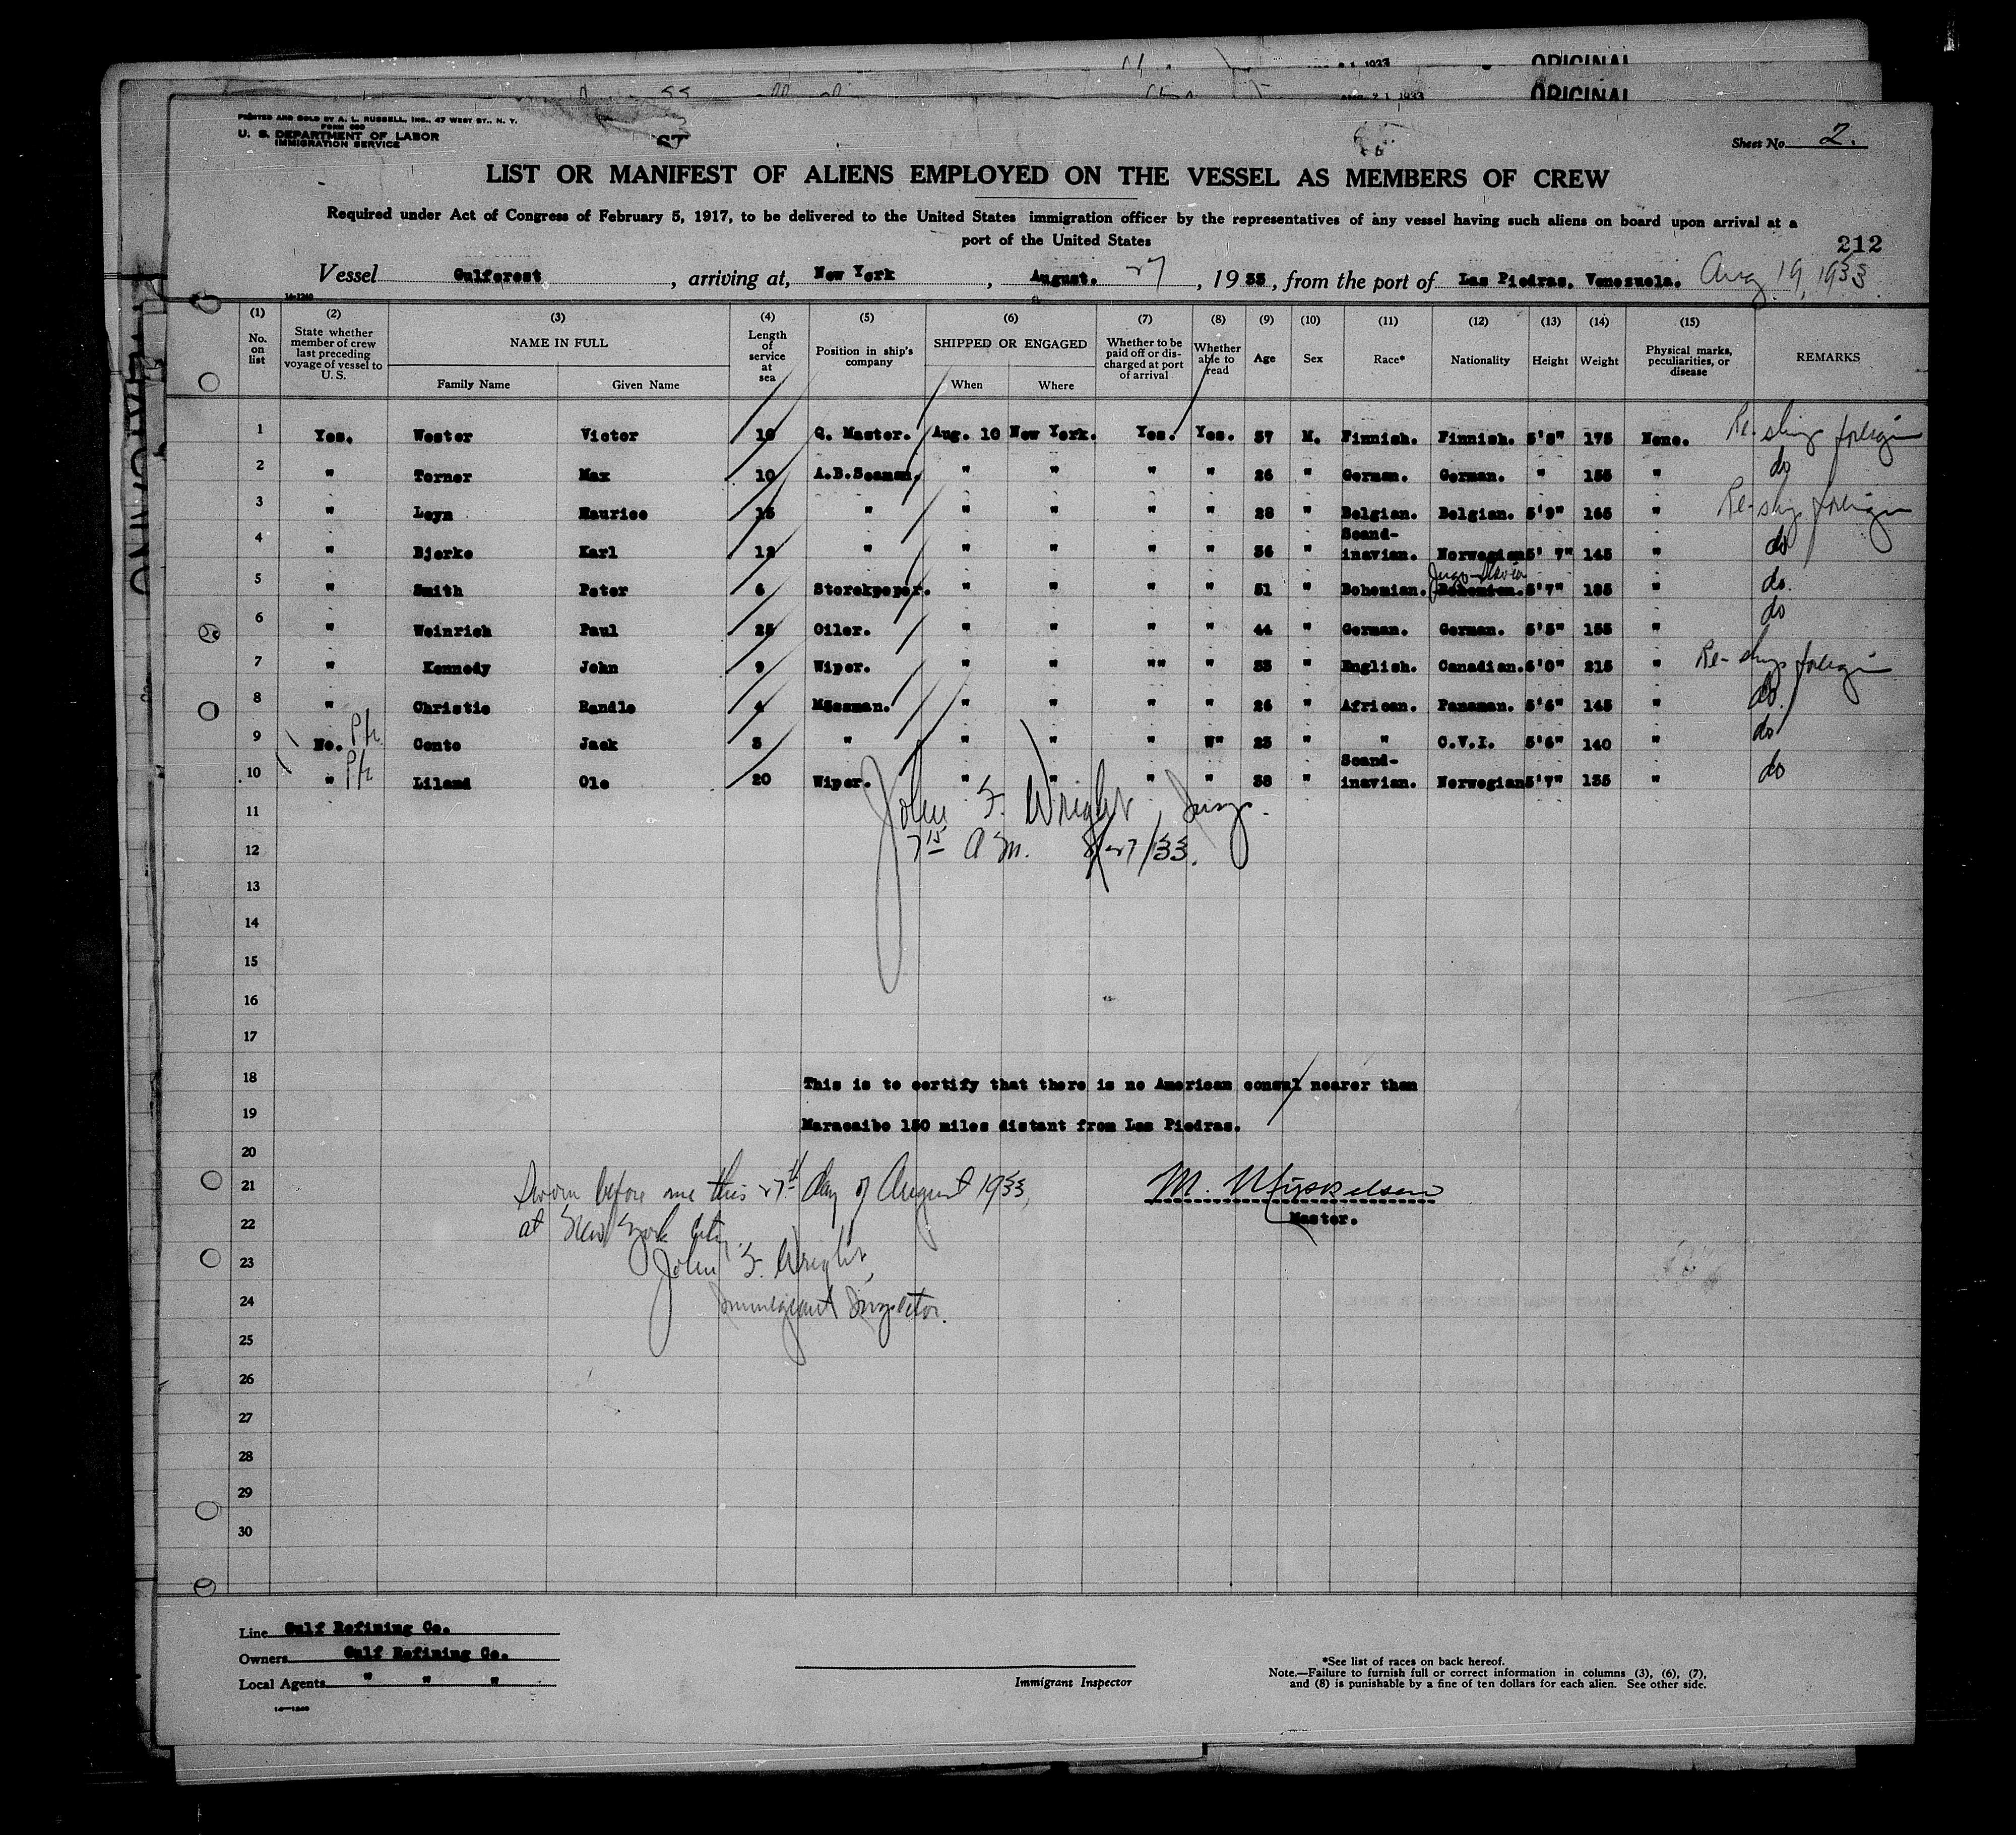 ORIGINAL
ORIGINAL
PRINTED AND SOLD BY A. L. RUSSELL, INC., 47 WEST ST., N. Y.
FORM 680
U. S. DEPARTMENT OF LABOR
IMMIGRATION SERVICE
ST
Sheet No. 2.
LIST OR MANIFEST OF ALIENS EMPLOYED ON THE VESSEL AS MEMBERS OF CREW
Required under Act of Congress of February 5, 1917, to be delivered to the United States immigration officer by the representatives of any vessel having such aliens on board upon arrival at a
port of the United States
212
Vessel Gulfcrest, arriving at, New York, August. 27, 1933, from the port of Las Piedras, Venezuela. Aug 19, 1933
14-1240
(1) No. on list (2) State whether member of crew last preceding voyage of vessel to U. S. (3) NAME IN FULL Family Name Given Name (4) Length of service at sea (5) Position in ship's company (6) SHIPPED OR ENGAGED When Where (7) Whether to be paid off or discharged at port of arrival (8) Whether able to read (9) Age (10) Sex (11) Race* (12) Nationality (13) Height (14) Weight (15) Physical marks, peculiarities, or disease REMARKS
1 Yes. Wester Victor 10 Q. Master. Aug. 10 New York. Yes. Yes. 37 M. Finnish. Finnish. 5'8" 175 None. Re-ships foreign
2 " Terner Max 10 A.B.Seaman. " " " " 26 " German. German. " 155 " do
3 " Leyn Maurice 15 " " " " " 28 " Belgian. Belgian. 5'9" 165 " Re-ships foreign
4 " Bjerke Karl 12 " " " " " 36 " Scandinavian. Norwegian 5' 7" 145 " do
5 " Smith Peter 6 Storekpeper. " " " " 51 " Bohemian. Bohemian. Jugo-Slavia 5'7" 185 " do.
6 " Weinrich Paul 25 Oiler. " " " " 44 " German. German. 5'5" 155 " do
7 " Kennedy John 9 Wiper. " " "" " 33 " English. Canadian. 6'0" 215 " Re-ships foreign
8 " Christie Randle 4 Messman. " " " " 26 " African. Panaman. 5'6" 145 " do.
9 No. Conto Jack 3 " " " " " 23 " " C.V.I. 5'6" 140 " do
10 " Liland Ole 20 Wiper. " " " " 38 " Scandinavian. Norwegian 5'7" 135 " do
11
John F. Wright, Insp.
12
7 15 A M. 8/27/33.
13
14
15
16
17
18 This is to certify that there is no American consul nearer than
19 Maracaibo 150 miles distant from Las Piedras.
20
21 Sworn before me this 27th day of August 1933, M. Mikkelsen
22 at New York City Master.
23 John F. Wright,
24 Immigrant Inspector.
25
26
27
28
29
30
Line Gulf Refining Co.
Owners Gulf Refining Co.
Local Agents " " "
14-1240
Immigrant Inspector
*See list of races on back hereof.
Note.—Failure to furnish full or correct information in columns (3), (6), (7),
and (8) is punishable by a fine of ten dollars for each alien. See other side.